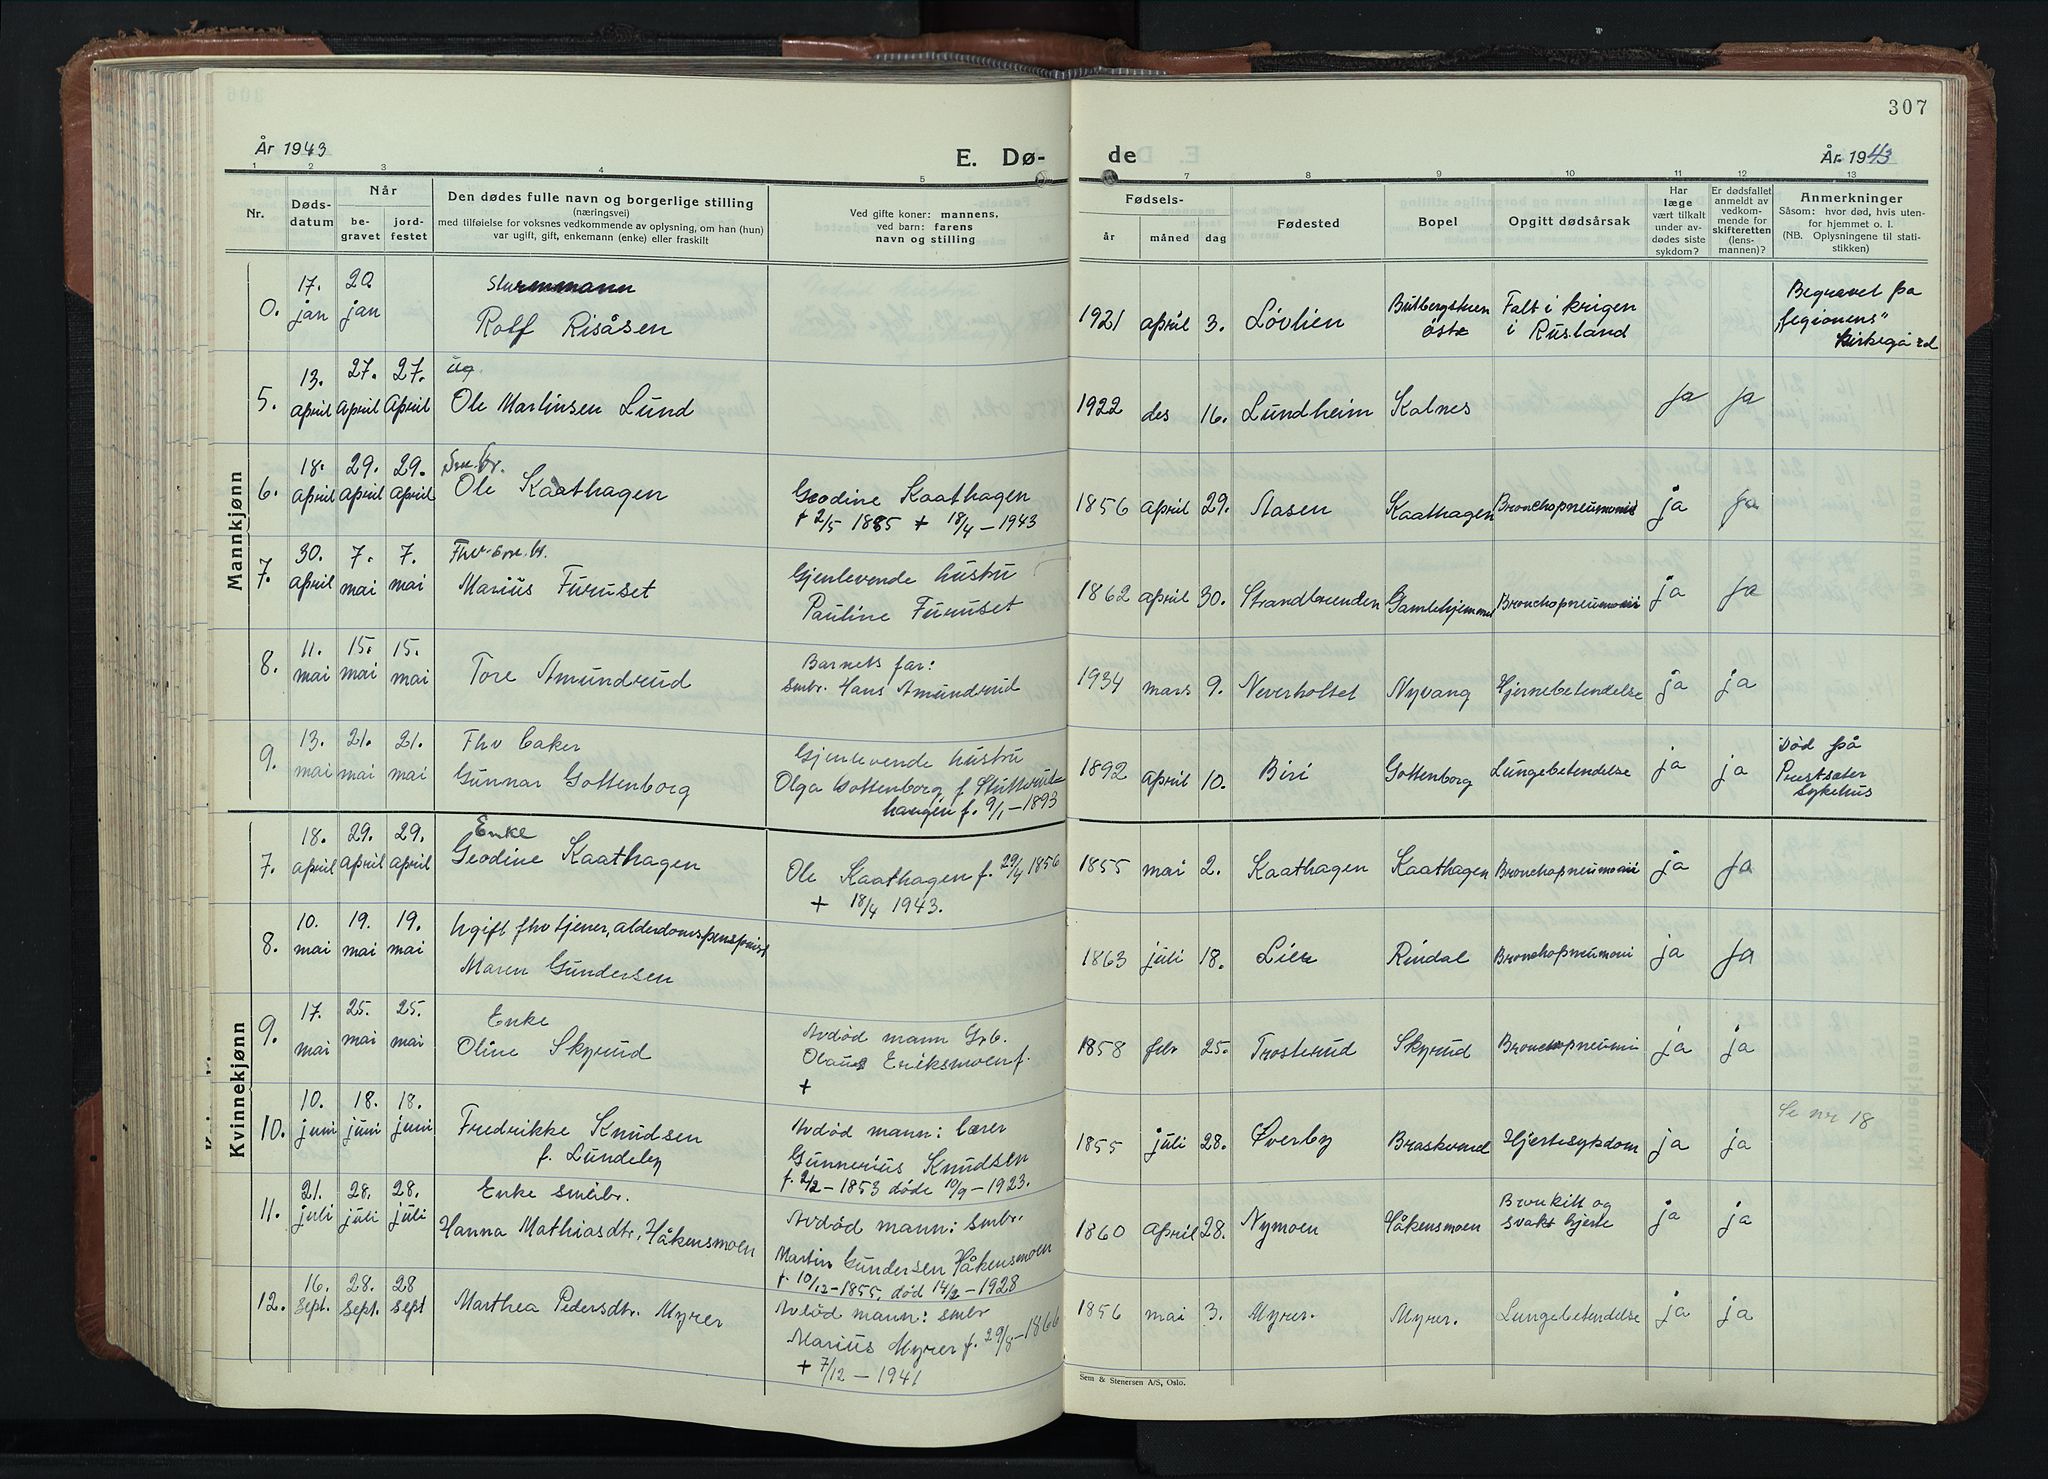 307
År 1943
E. Dø-
de
År 1943
1 2 3 4 5 7 8 9 10 11 12 13
Nr.
Døds-
datum
Når
be-
gravet
jord-
festet
Den dødes fulle navn og borgerlige stilling
(næringsvei)
med tilføielse for voksnes vedkommende av oplysning, om han (hun)
var ugift, gift, enkemann (enke) eller fraskilt
Ved gifte koner: mannens,
ved barn: farens
navn og stilling
Fødsels-
år måned dag
Fødested
Bopel
Opgitt dødsårsak
Har
læge
vært tilkalt
under av-
dødes siste
sykdom?
Er dødsfallet
anmeldt av
vedkom-
mende for
skifteretten
(lens-
mannen)?
Anmerkninger
Såsom: hvor død, hvis uten-
for hjemmet o. l.
(NB. Oplysningene til stati-
stikken)
Mannkjønn
0. 17. jan 20. jan
Sturmmann
Rolf Risåsen
1921 april 3. Løvlien
østre
Falt i krigen
i Rusland
Begravet på
"legionens"
kirkegård
5. 13. april 27. april 27. april
ug.
Ole Martinsen Lund
1922 des 16. Lundheim Kalnes ja ja
6. 18. april 29. april 29. april
Sm.br.
Ole Kaathagen
Geodine Kaathagen
f 2/5 1855 + 18/4 – 1943
1856 april 29. Aasen Kaathagen Bronchopneumoni ja ja
7. 30. april 7. mai 7. mai
Fhv. sm.br.
Marius Furuset
Gjenlevende hustru
Pauline Furuset
1862 april 30. Strandbrenden Gamlehjemmet Bronchopneumoni ja ja
8. 11. mai 15. mai 15. mai
Tore Amundrud
Barnets far:
Smbr. Hans Amundrud
1934 mars 9. Neverholtet Nyvang Hjernebetendelse ja ja
9. 13. mai 21. mai 21. mai
Fhv baker
Gunnar Gottenborg
Gjenlevende hustru
Olga Gottenborg f. Stutterud-
haugen f. 9/1 – 1893
1892 april 10. Biri Gottenborg Lungebetendelse ja ja
Død på
Prestsæter
Sykehus
Kvinnekjønn
7. 18. april 29. april 29. april
Enke
Geodine Kaathagen
Ole Kaathagen f. 29/4 1856
+ 18/4 1943.
1855 mai 2. Kaathagen Kaathagen Bronchopneumoni ja ja
8. 10. mai 19. mai 19. mai
Ugift fhv tjener, alderdomspensjonist
Maren Gundersen
1863 juli 18. Lier Rindal Bronchopneumoni ja ja
9. 17. mai 25. mai 25. mai
Enke
Oline Skyrud
Avdød mann Grb.
Olaus Eriksmoen f.
+
1858 feb 25. Trosterud Skyrud Bronchopneumoni ja ja
10. 10. juni 18. juni 18. juni
Fredrikke Knudsen
f. Lundeby
Avdød mann: lærer
Gunnerius Knudsen
f. 2/2 – 1853 døde 10/9 – 1923.
1855 juli 28. Øverby Braskerud Hjertesykdom ja ja
Se nr 18
11. 21. juli 28. juli 28. juli
Enke småbr.
Hanna Mathiasdtr. Håkensmoen
Avdød mann: Smbr.
Martin Gundersen Håkensmoen
f. 10/12 – 1855, død 14/2 – 1928
1860 april 28. Nymoen Håkensmoen
Bronkitt og
svakt hjerte
ja ja
12. 16. sept. 28. sept. 28 sept
Marthea Pedersdtr. Myrer
Avdød mann: smbr
Marius Myrer f. 29/8 – 1866
+ 7/12 – 1941
1856 mai 3. Myrer. Myrer. Lungebetendelse ja ja
Sem & Stenersen A/S, Oslo.